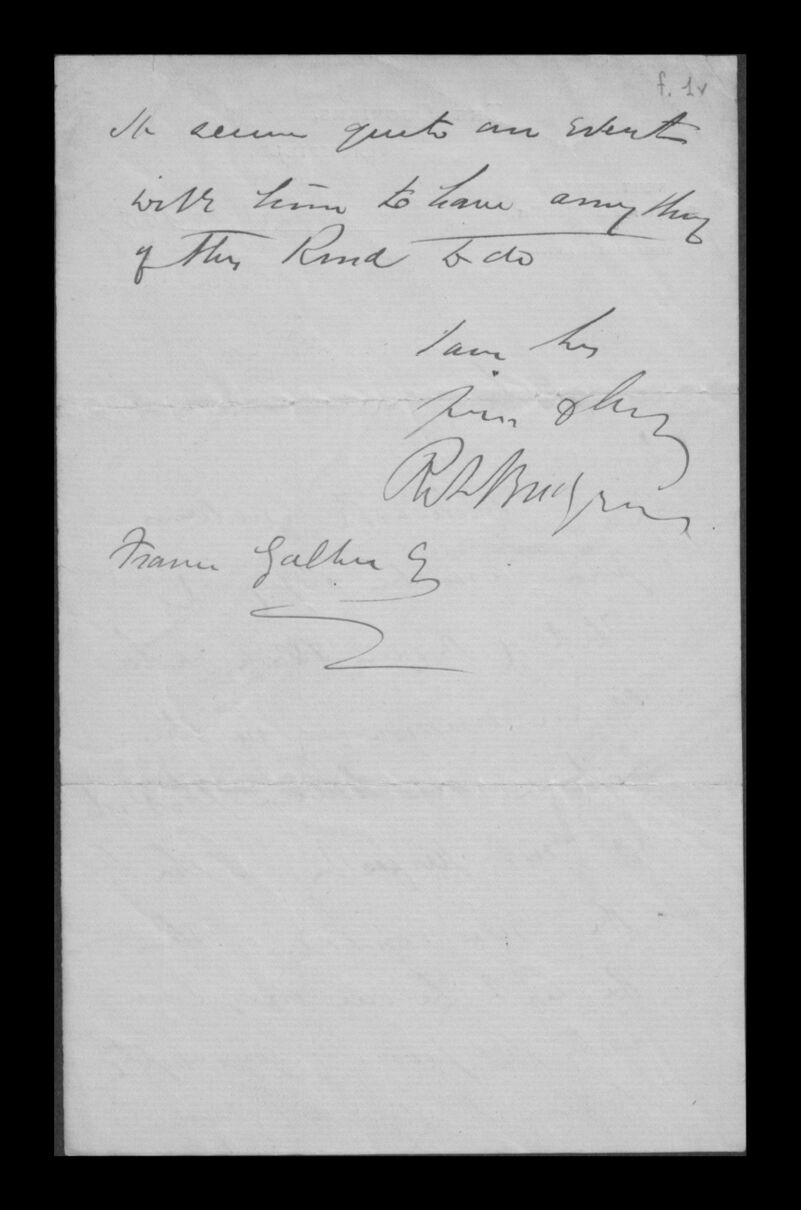 f. 1v
It seems quite an event
with him to have anything
of this kind to do
I am
Francis Galton Esq